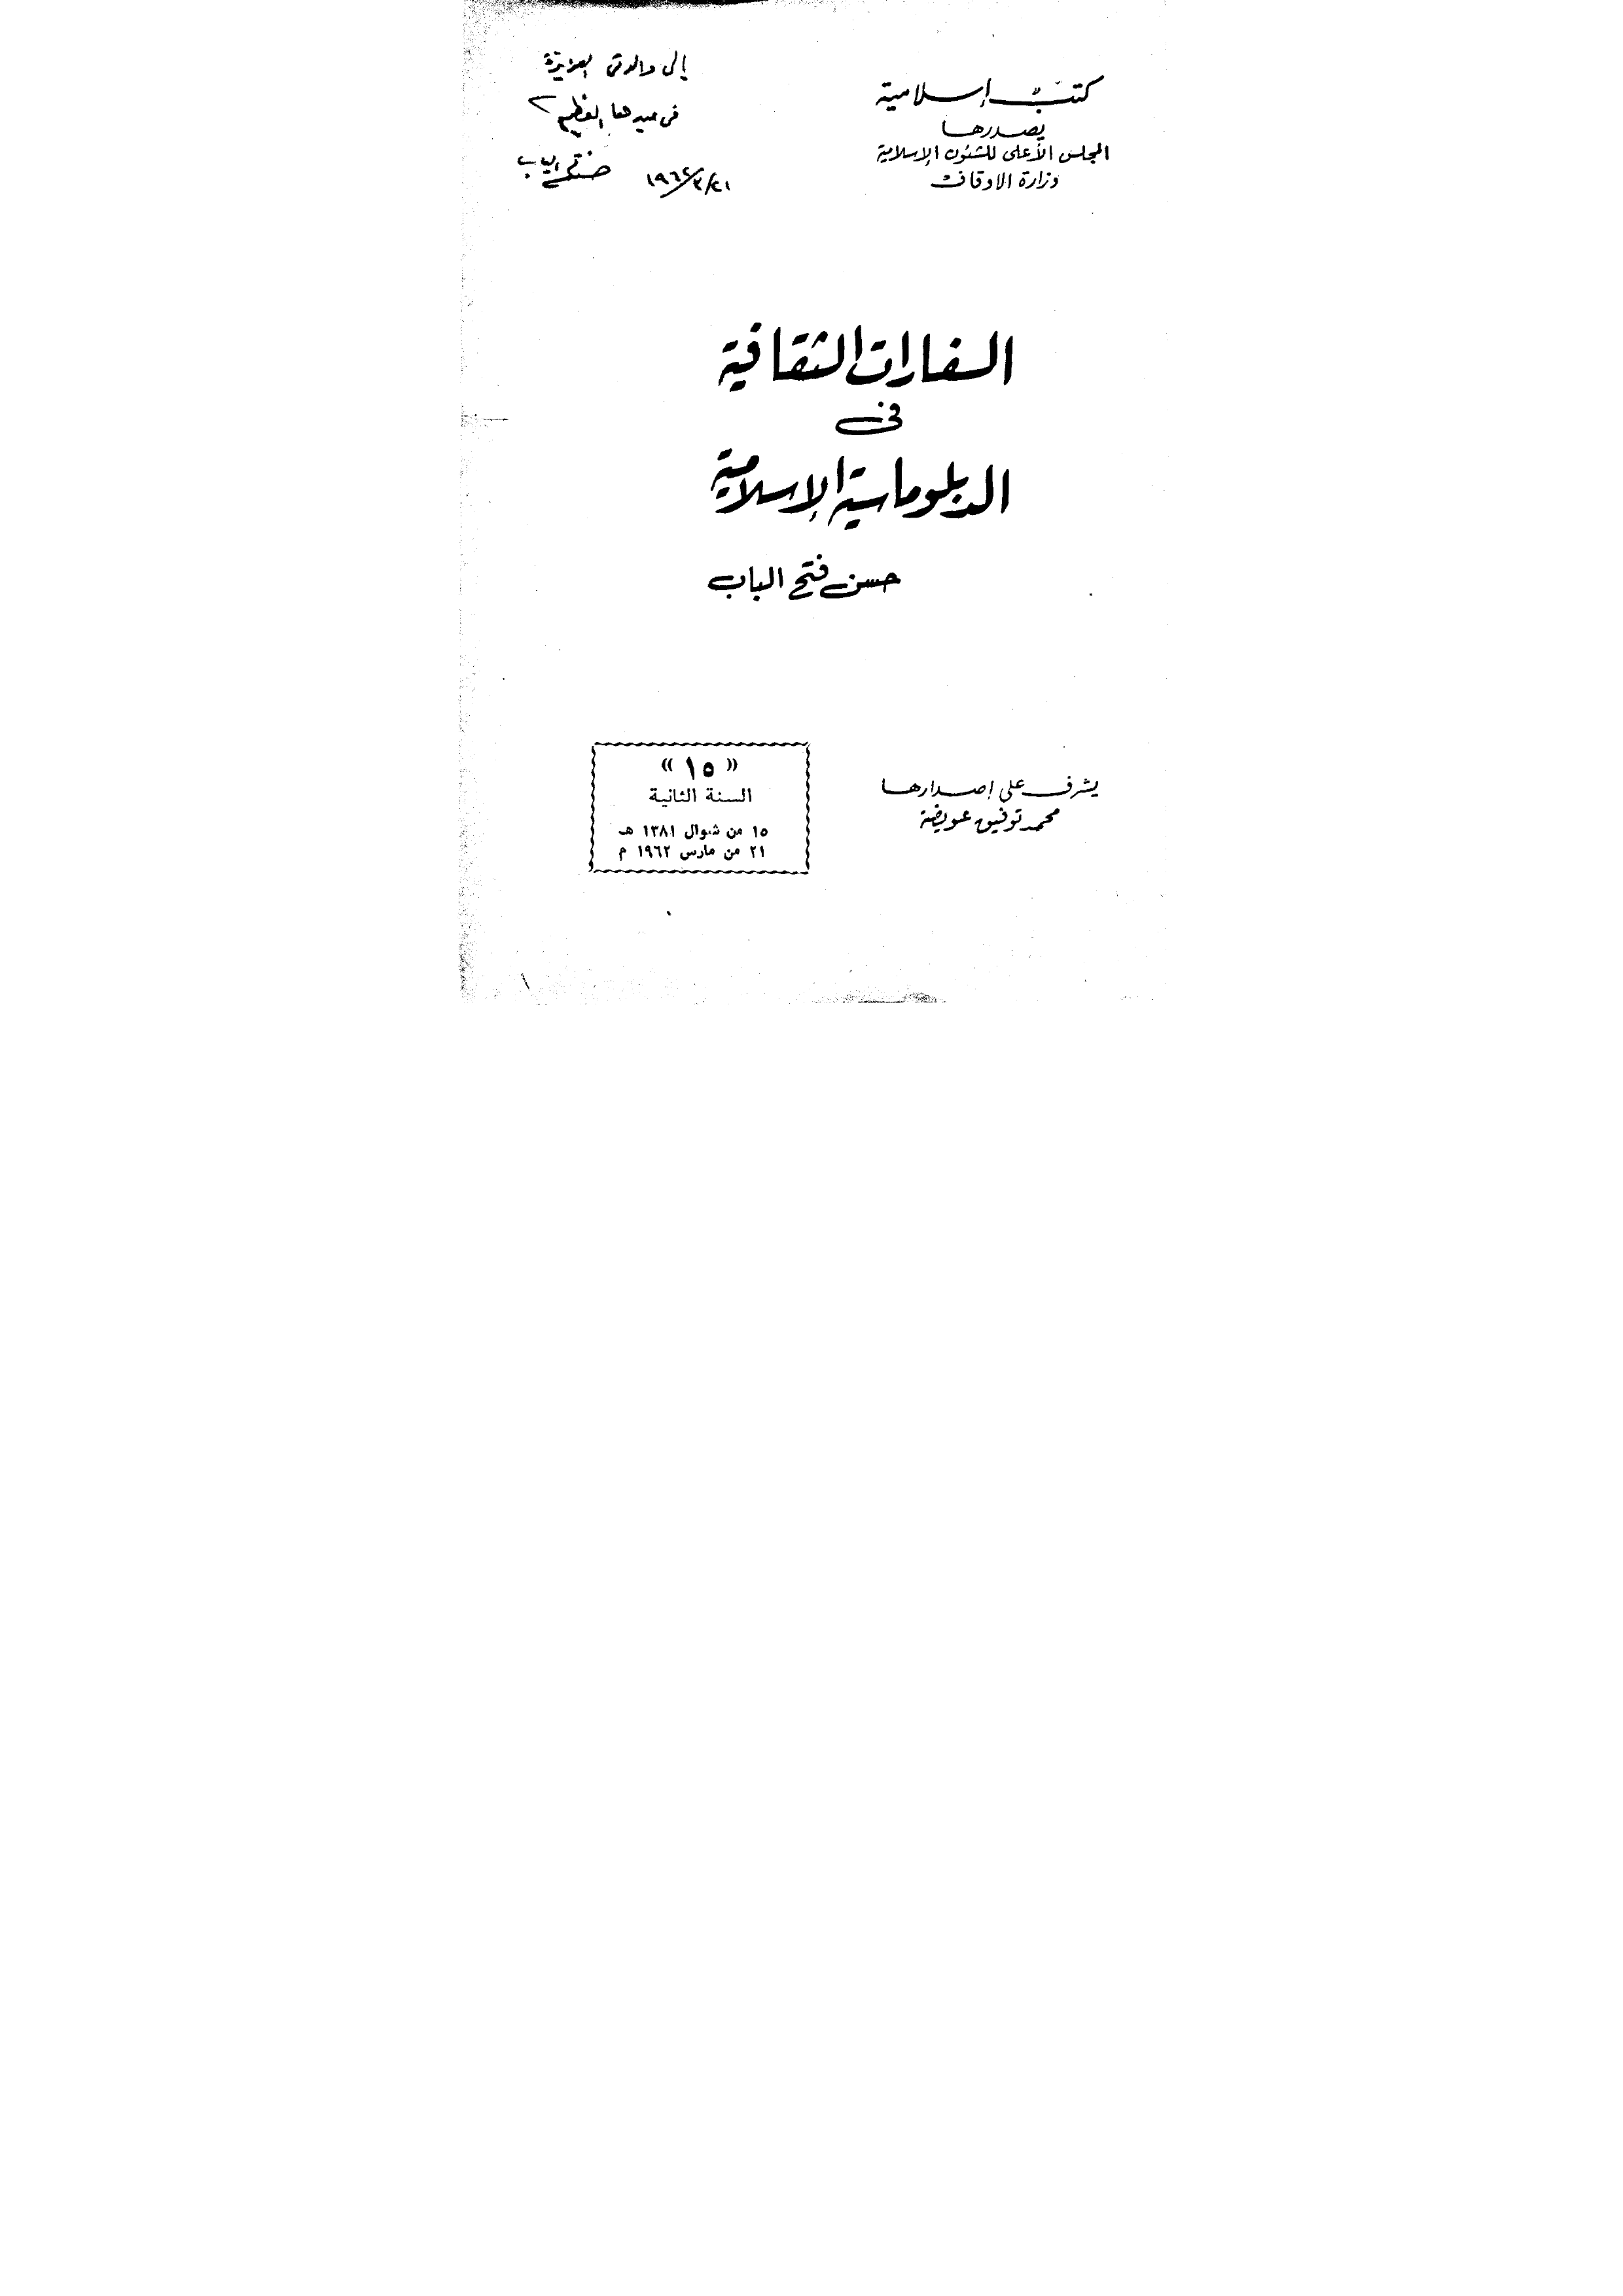 كتب إسلامية
يصدرها
المجلس الأعلى للشئون الإسلامية
وزارة الاوقاف
إلى والدتى العزيزة
فى عيدها العظيم
١٩٦٢/٣/٢١
حسن فتح الباب
السفارات الثقافية
فى
الدبلوماسية الإسلامية
حسن فتح الباب
يشرف على إصدارها
محمد توفيق عويضة
« ١٥ »
السنة الثانية
١٥ من شوال ١٣٨١ هـ
٢١ من مارس ١٩٦٢ م